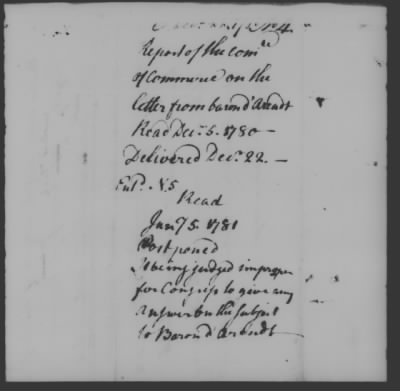 No. 4.
Report of the com.ee
of Commerce on the
letter from baron d'Arendt
Read Decr. 5. 1780 —
Delivered Decr. 22. —
Entd. N.5
Read
Jany 5. 1781
Postponed
It being judged improper
for Congress to give any
answer on the subject
to Baron d'Arendt